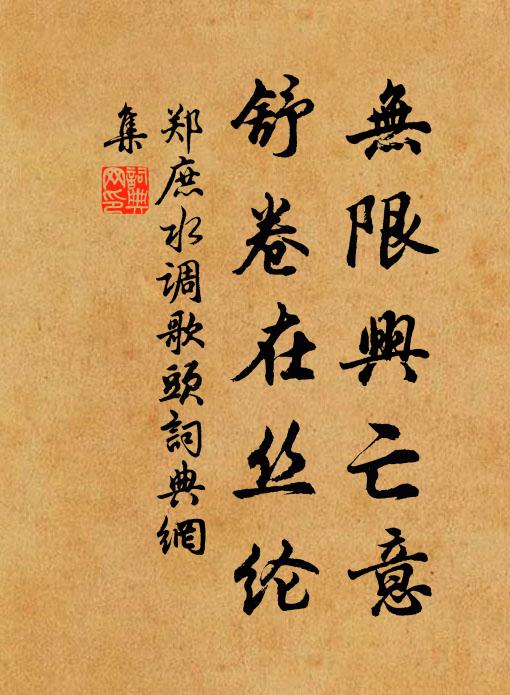 無限興亡意
舒卷在丝纶
郑庶水调歌頭詞典網
集
詞典网印